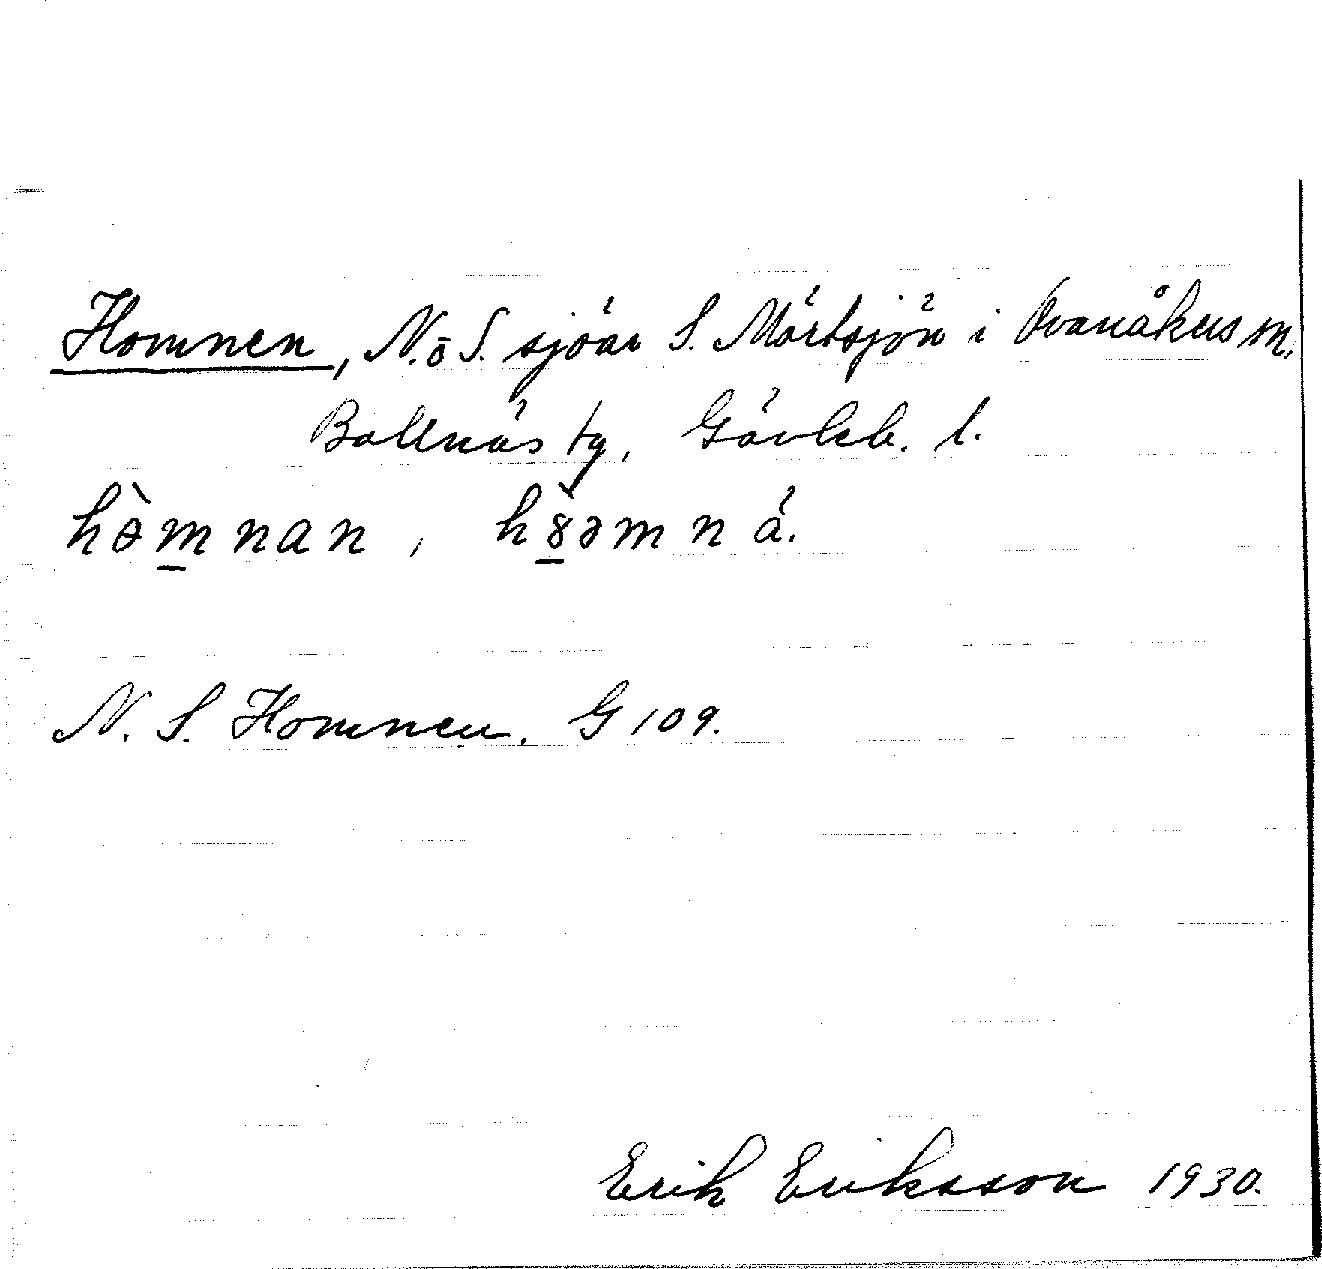 Homnen, N. o S. sjöar S. Mörtsjön i Ovanåkers m.
Bollnäs tg, Gävleb. l.
hòmnan, h əmná.
N. S. Homnen. G 109.
Erik Eriksson 1930.